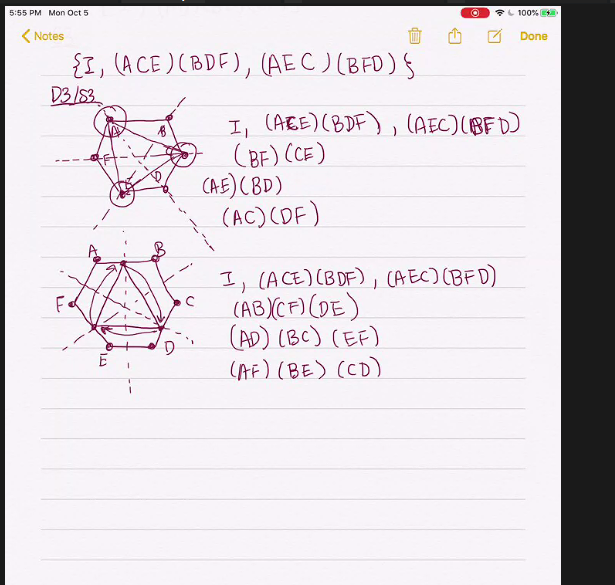 5:55 PM Mon Oct 5
100%
Notes
Done
{I, (ACE)(BDF), (AEC)(BFD)}
D3/S3
A B
I, (ACE)(BDF), (AEC)(BFD)
F C
(BF)(CE)
E D
(AE)(BD)
(AC)(DF)
A B
I, (ACE)(BDF), (AEC)(BFD)
F C
(AB)(CF)(DE)
(AD)(BC)(EF)
E D
(AF)(BE)(CD)